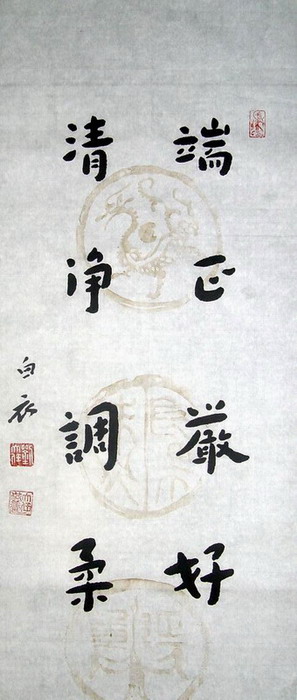 端正嚴好
清净調柔
白衣